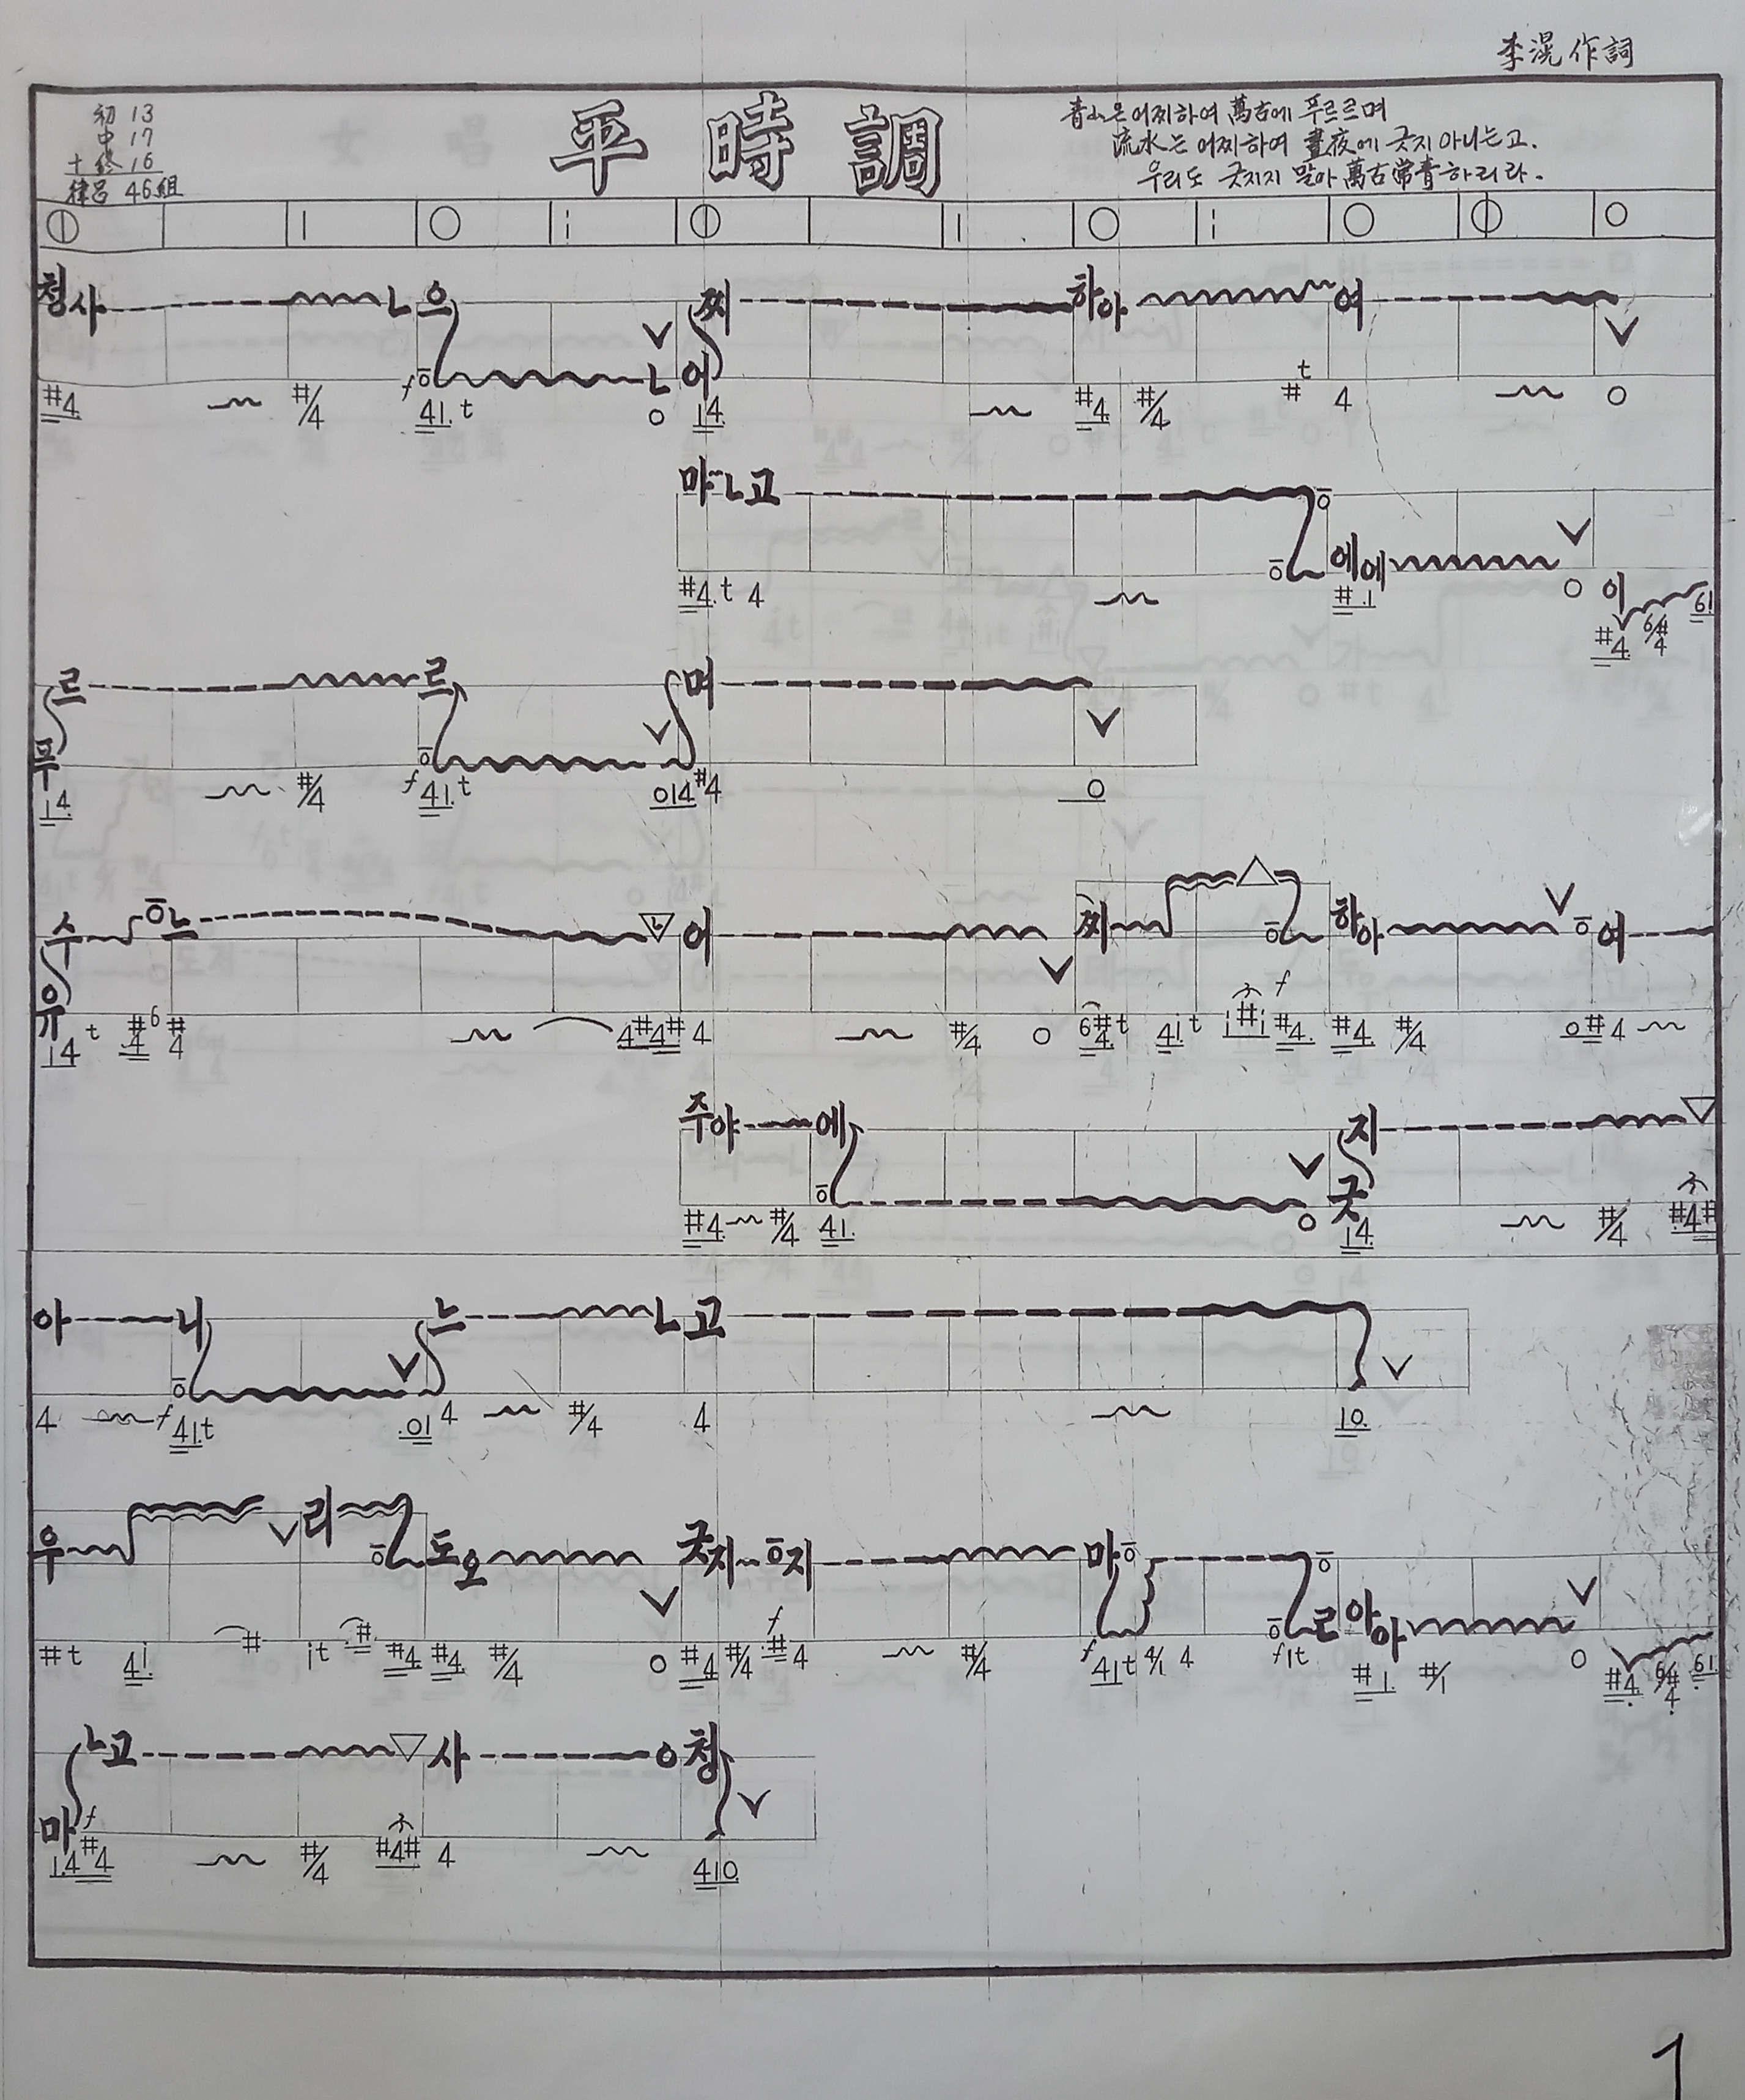 李滉作詞
初 13
中 17
十終 16
律呂 46組
平時調
靑山은 어찌하여 萬古에 푸르르며
流水는 어찌하여 晝夜에 긋지 아니는고.
우리도 긋지지 말아 萬古常靑하리라.
청사 ㄴ 으 ㄴ 어 찌 하아 여
#4 #/4 f 41. t 0 14 #4 #/4 t # 4 0
마 ㄴ 고 에에 이
#4. t 4 #1 0 #4. 6#/4 61
푸 르 르 며
14. #/4 f 41. t 014 #4 0
유 수 으느 ㄴ 어 찌 하아 여
14 t #4 6 #4 4#4# 4 #/4 0 6#4. t 41 t 1#1 f #4. #4 #/4 0#4
주야 에 긋 지
#4 #/4 41. 0 14 #/4 #4#
아 니 느 ㄴ 고
4 f 41. t .01 4 #/4 4 10.
우 리 도오 긋지 으지 마 르 아아
#t 41 # 1t # #4 #4 #/4 0 #4 #/4 f #4 #/4 f 41t 4/1 4 f1t #1 #/1 0 #4 6#/4 61
마 ㄴ 고 사 ㅇ 청
14 f #4 #/4 #4# 4 410
1